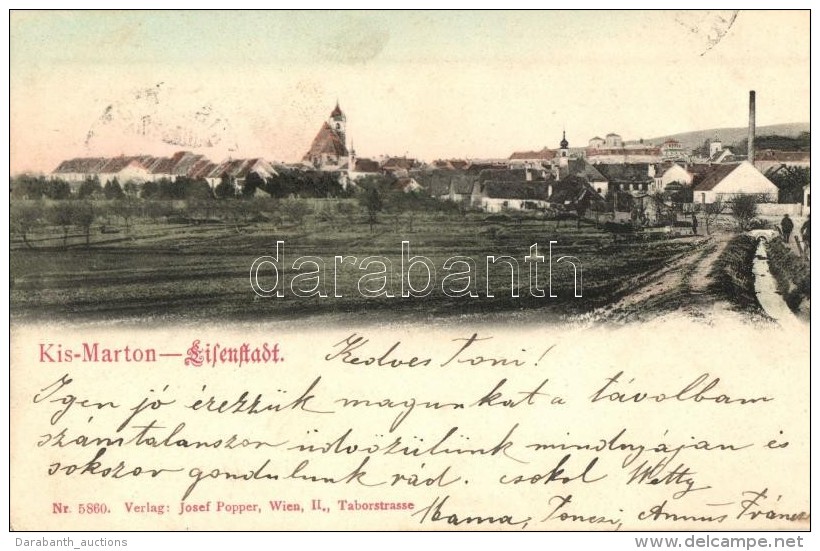 darabanth
Kis-Marton — Eisenstadt.
Kedves Toni!
Igen jó érezzük magunkat a távolbam
számtalanszor üdvözülünk mindnyájan és
sokszor gondulunk rád. csokol Wetty
Nr. 5860. Verlag: Josef Popper, Wien, II., Taborstrasse
Mama, Toncsi, Annus
Darabanth_auctions
delcampe.net